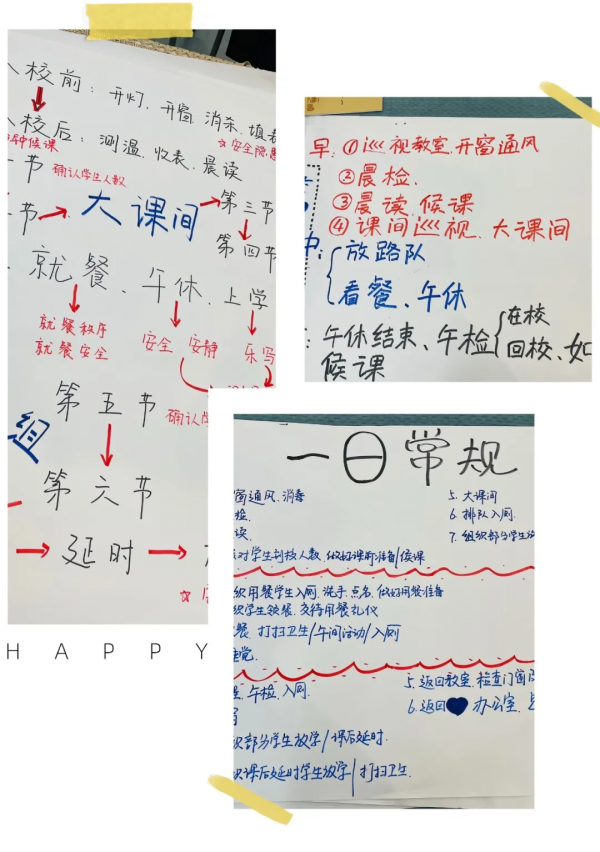 入校前：开灯、开窗、消杀、填表
入校后：测温、收表、晨读
钟候课
☆安全隐患
一节
确认学生人数
大课间
第三节
第四节
就餐、午休、上学
就餐秩序
就餐安全
安全 安静
乐写
第五节
确认学
组
第六节
延时
HAPPY
早：①巡视教室、开窗通风
②晨检、
③晨读、候课
④课间巡视、大课间
中：放路队
看餐、午休
午休结束、午检
在校
回校、如
候课
一日常规
窗通风、消毒
检、
读、
对学生到校人数、做好课前准备/候课
5. 大课间
6. 排队入厕
7. 组织部分学生
织用餐学生入厕、洗手、点名、做好用餐准备
织学生领餐、交待用餐礼仪
餐、打扫卫生/午间活动/入厕
睡觉
午检、入厕、
5. 返回教室、检查门窗
6. 返回 办公室、
织部分学生放学/课后延时、
织课后延时学生放学/打扫卫生、